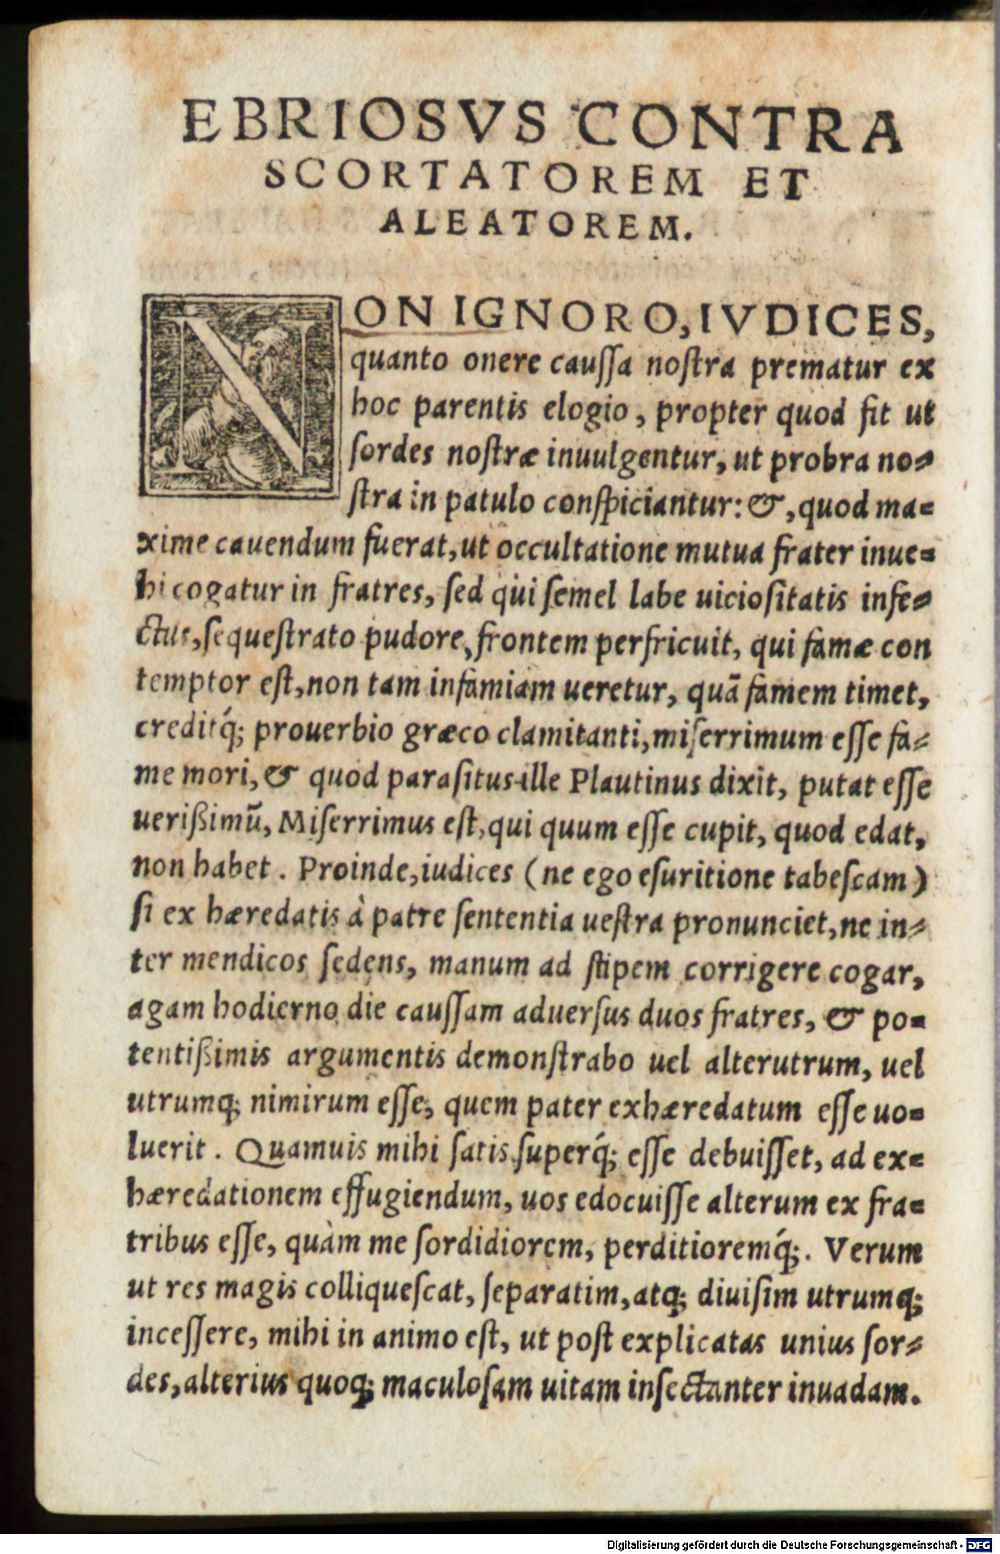 EBRIOSVS CONTRA
SCORTATOREM ET
ALEATOREM.
NON IGNORO, IVDICES,
quanto onere cauſſa noſtra prematur ex
hoc parentis elogio, propter quod fit ut
ſordes noſtræ inuulgentur, ut probra no-
ſtra in patulo conſpiciantur: &, quod ma-
xime cauendum fuerat, ut occultatione mutua frater inue-
hi cogatur in fratres, ſed qui ſemel labe uicioſitatis infe-
ctus, ſequeſtrato pudore, frontem perfricuit, qui famæ con
temptor eſt, non tam infamiam ueretur, quã famem timet,
creditq́; prouerbio græco clamitanti, miſerrimum eſſe fa-
me mori, & quod paraſitus ille Plautinus dixit, putat eſſe
ueriſsimũ, Miſerrimus eſt, qui quum eſſe cupit, quod edat,
non habet. Proinde, iudices (ne ego eſuritione tabeſcam)
ſi ex hæredatis à patre ſententia ueſtra pronunciet, ne in-
ter mendicos ſedens, manum ad ſtipem corrigere cogar,
agam hodierno die cauſſam aduerſus duos fratres, & po-
tentiſsimis argumentis demonſtrabo uel alterutrum, uel
utrumq; nimirum eſſe, quem pater exhæredatum eſſe uo-
luerit. Quamuis mihi ſatis ſuperq́; eſſe debuiſſet, ad ex-
hæredationem effugiendum, uos edocuiſſe alterum ex fra-
tribus eſſe, quàm me ſordidiorem, perditioremq́;. Verum
ut res magis colliqueſcat, ſeparatim, atq; diuiſim utrumq;
inceſſere, mihi in animo eſt, ut poſt explicatas unius ſor-
des, alterius quoq; maculoſam uitam inſectanter inuadam.
Digitalisierung gefördert durch die Deutsche Forschungsgemeinschaft - DFG